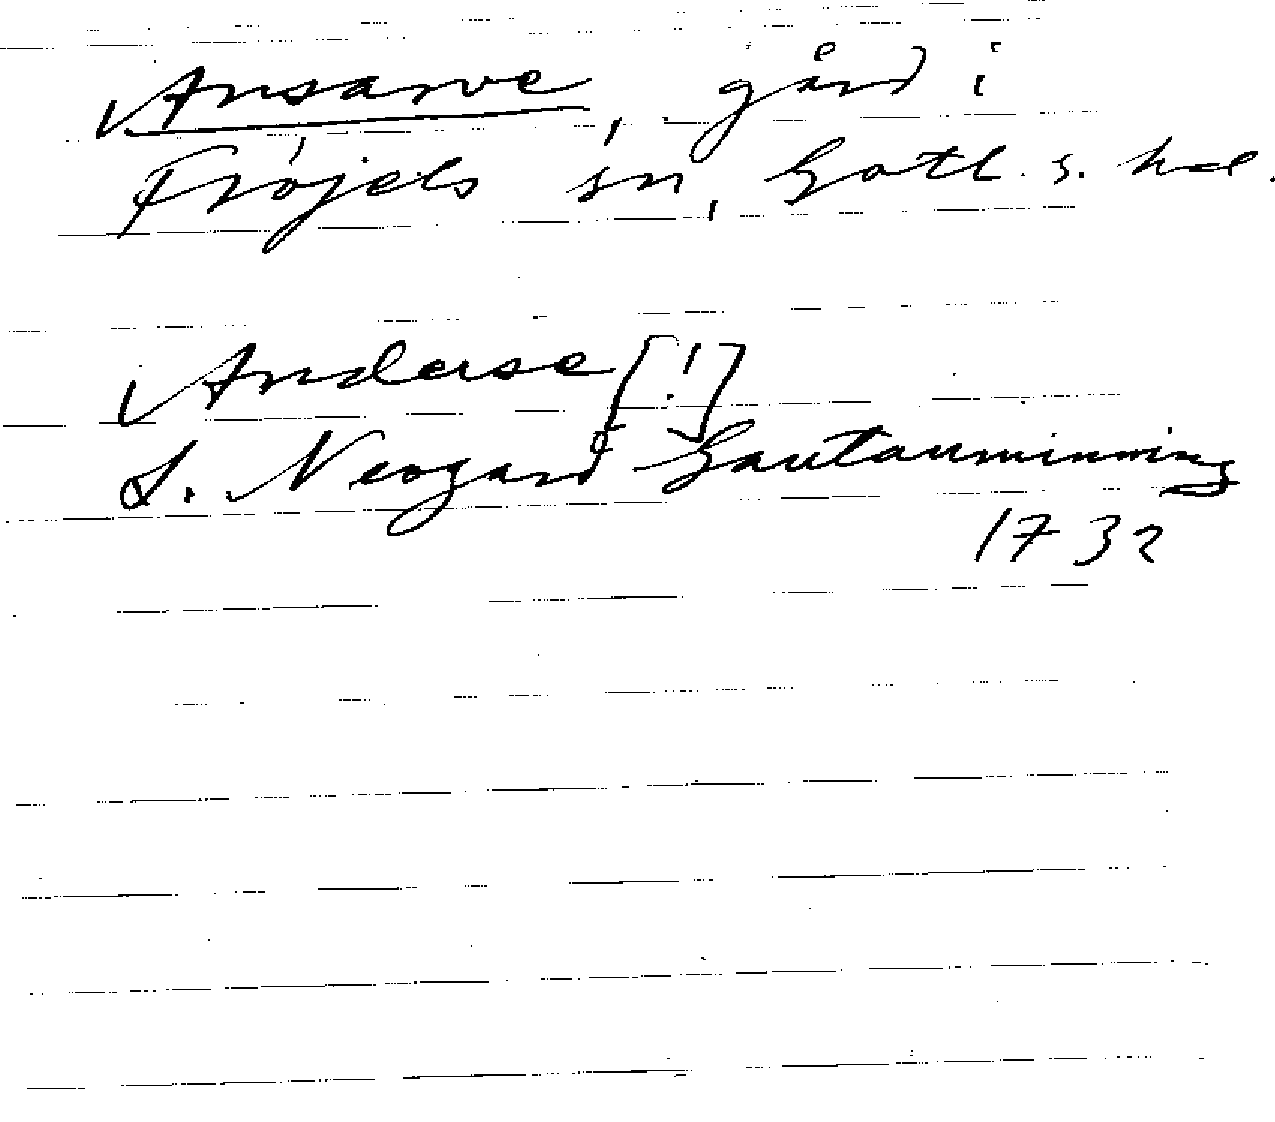 Ansarve, gård i
Fröjels sn, Gotl. s. hd.
Anderse [!]
L. Neogard Gautauminning
1732